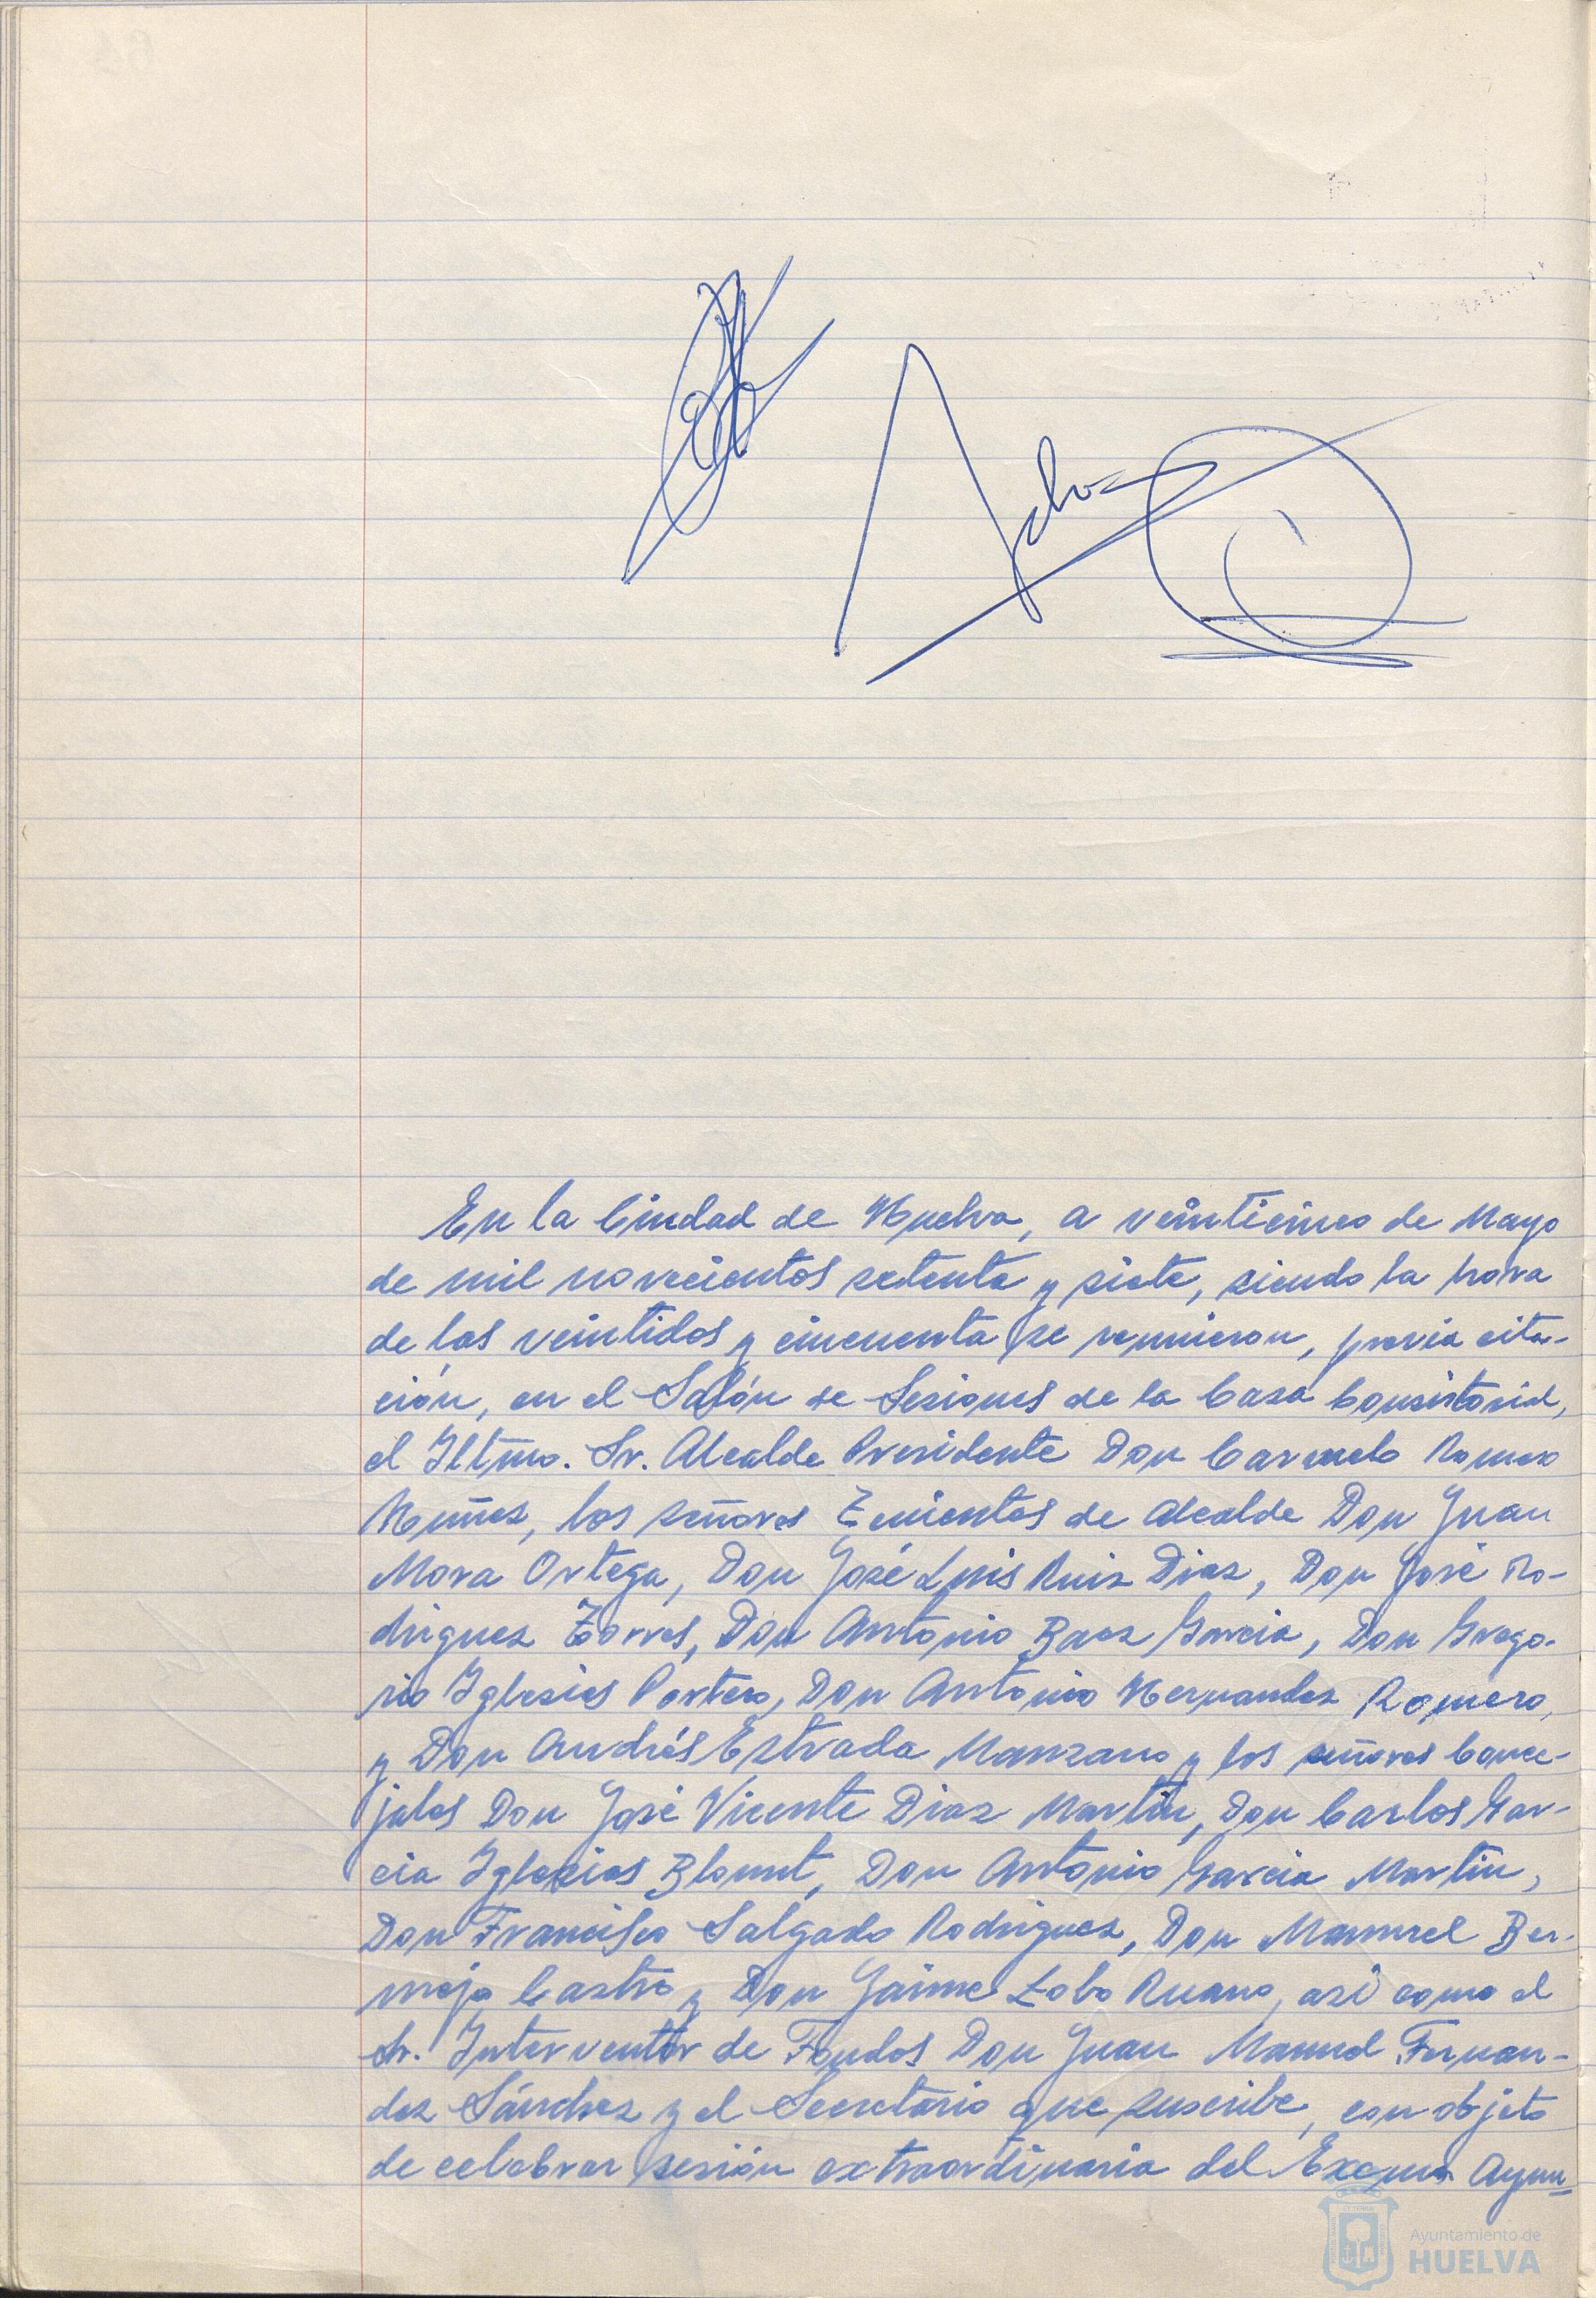 En la Ciudad de Huelva, a veinticinco de Mayo
de mil novecientos setenta y siete, siendo la hora
de las veintidos y cincuenta se reunieron, previa cita-
ción, en el Salón de Sesiones de la Casa Consistorial,
el Iltmo. Sr. Alcalde Presidente Don Carmelo Romero
Nuñez, los señores Tenientes de Alcalde Don Juan
Mora Ortega, Don José Luis Ruiz Diaz, Don José Ro-
driguez Torres, Don Antonio Baez Garcia, Don Grego-
rio Iglesias Portero, Don Antonio Hernandez Romero,
y Don Andrés Estrada Manzano y los señores Conce-
jales Don José Vicente Diaz Martin, Don Carlos Gar-
cia Iglesias Blount, Don Antonio Garcia Martin,
Don Francisco Salgado Rodriguez, Don Manuel Ber-
mejo Castro y Don Jaime Lobo Ruano, asi como el
Sr. Interventor de Fondos Don Juan Manuel Fernan-
dez Sánchez y el Secretario que suscribe, con objeto
de celebrar sesión extraordinaria del Excmo. Ayun-
Ayuntamiento de
HUELVA